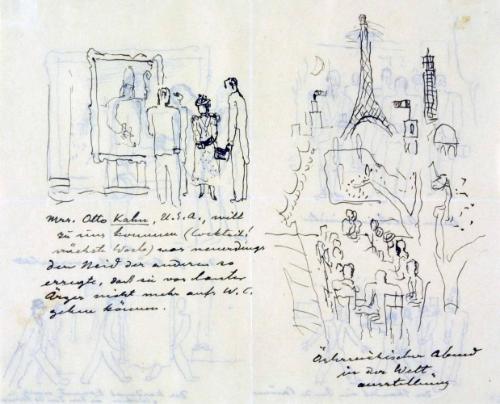 Mrs. Otto Kahn, U.S.A., will
zu uns kommen (Cocktail!
nächste Woche) was neuerdings
den Neid der anderen so
erregte, daß sie vor lauter
Ärger nicht mehr aufs W.C.
gehen können.
Österreichischer Abend
in der Welt-
ausstellung